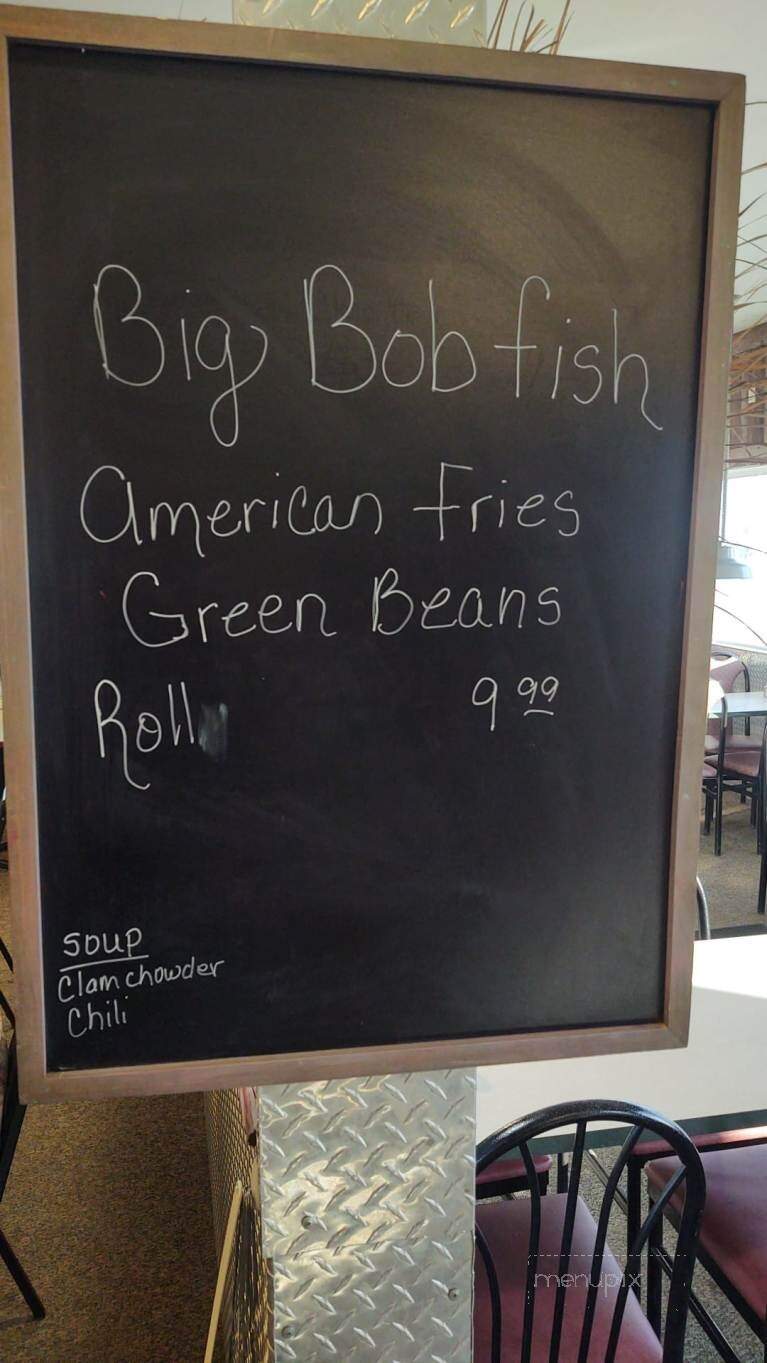 Big Bob fish
American Fries
Green Beans
Roll 9 99
Soup
Clam chowder
Chili
menupix